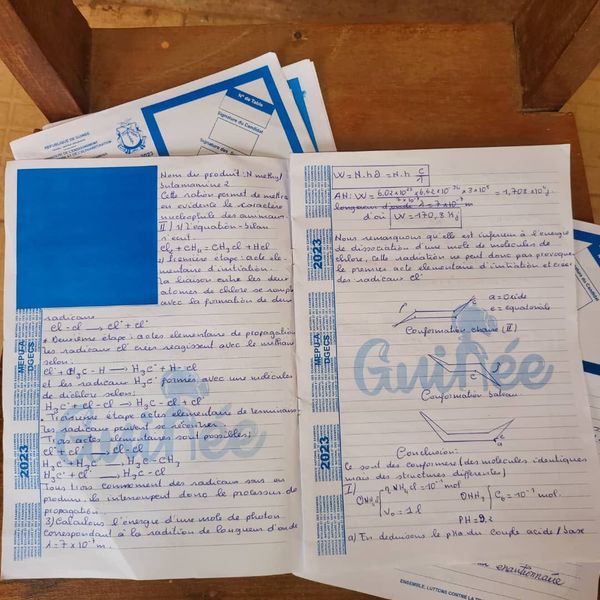 REPUBLIQUE DE GUINEE
N° de Table
Signature du Candidat
Signature des
Nom du produit: N methyl
butanamine 2
Cette ration permet de mettre
en evidence le caractère
nucleophile des amines
II) 1) l'equation-bilan
s'ecrit
Cl2 + CH4 → CH3Cl + HCl
2) Première étape: acte elé-
mentaire d'initiation.
la liaison entre les deux
atomes de chlore se rompt
avec la formation de deux
radicaux
Cl-Cl → Cl· + Cl·
* Deuxième étape: actes elementaire de propagation
les radicaux Cl· crées reagissent avec le méthane
selon:
Cl· + H3C-H → H3C· + H-Cl
et les radicaux H3C· formés avec une molécules
de dichlore selon:
H3C· + Cl-Cl → H3C-Cl + Cl·
Troisième étape actes elementaire de terminaison
les radicaux peuvent se
Trois actes elementaires sont possibles;
Cl· + Cl· → Cl-Cl
H3C· + H3C· → H3C-CH3
H3C· + Cl· → H3C-Cl
Tous trois consomment des radicaux sans en
produire, ils interrompent donc le processus de
propagation.
3) Calculons l'energie d'une mole de photon
correspondant à la radition de longueur d'onde
λ = 7 x 10⁻⁷ m
MEPU-A
DGECS
2023
W = N.h∂ = N.h c/λ
AN: W = 6.02 x 10²³ x 6,62 x 10⁻³⁴ x 3 x 10⁸ / 7 x 10⁻⁷ = 1,708 x 10⁵ j
longueur d'onde λ = 7 x 10⁻⁷ m
d'où W = 170,8 Kj
Nous remarquons qu'elle est inferieur à l'energie
de dissociation d'une mole de molecules de
chlore, Cette radiation ne peut donc pas provoquer
le premier acte elementaire d'initiation et créer
des radicaux Cl·
a = axide
e = equatoriale
Conformation chaise (II)
Conformation bateau
Guinée
Conclusion:
Ce sont des conformères (des molecules identiques
mais des structures differentes)
I)
NH4Cl = 10⁻¹ mol
V0 = 1 l
NH3 { C0 = 10⁻¹ mol.
PH = 9,2
a) En deduisons le pKa du couple acide/base
MEPU-A
DGECS
2023
ENSEMBLE, LUTTONS CONTRE LA